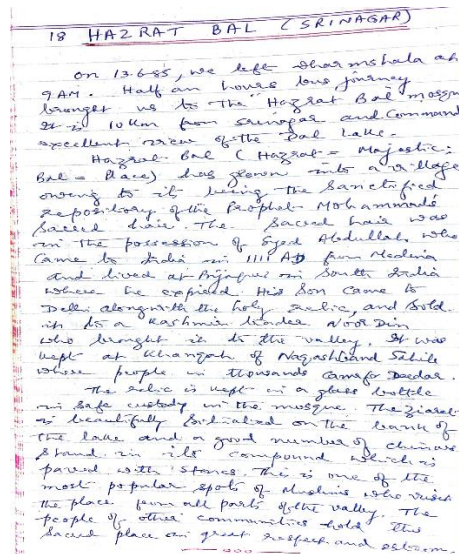 18 HAZRAT BAL (SRINAGAR)
On 13.6.85, we left dharmshala at
9 AM. Half an hours bus journey
brought us to the "Hazrat Bal mosque
It is 10 Km from srinagar and Command
excellent view of the Dal Lake.
Hazrat Bal (Hazrat = Majestic;
Bal = Place) has grown into a village
owing to its being the Sanctified
repository of the Prophet Mohammad's
Sacred hair. The Sacred hair was
in the possession of Syed Abdullah, who
Came to India in 1111 AD from Medina
and lived at Bijapur in South India
where he expired. His Son Came to
Delhi alongwith the holy relic, and Sold
it to a Kashmiri trader Noor Din
who brought it to the valley. It was
kept at Khangah of Naqashband Sahib
where people in thousands came for Deedar.
The relic is kept in a glass bottle
in safe custody in the mosque. The Ziarat
is beautifully Situated on the bank of
the lake and a good number of chinars
stand in its compound which is
paved with stones. This is one of the
most popular spots of Muslims who visit
the place from all parts of the valley. The
people of other communities hold this
Sacred place in great respect and esteem.